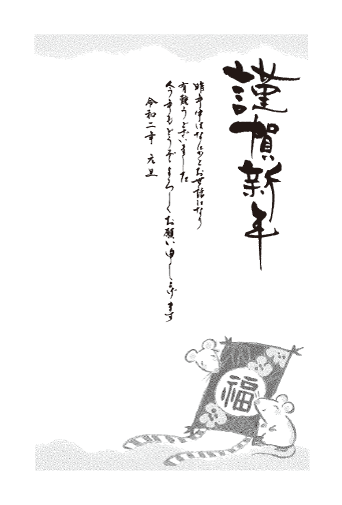 謹賀新年
昨年中はなにかとお世話になり
有難うございました
今年もどうぞよろしくお願い申し上げます
令和二年 元旦
福